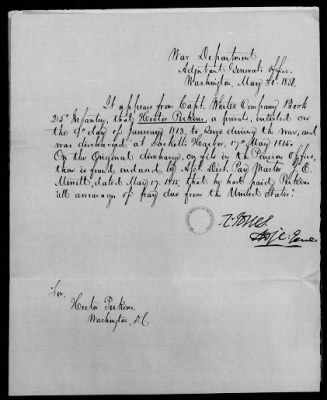 War Department,
Adjutant General's Office,
Washington, May
It appears from Capt. White's Company Book
21st Infantry, that Hector Perkins, a private, enlisted on
the 9th day of January 1813, to serve during the war, and
was discharged, at Sacketts Harbor, 17th May 1815.
On the Original discharge, on file in the Pension Office,
there is found endorsed by Dist. Pay Master
Merritt, dated May 17, 1815, that he had paid Perkins
"all arrearages of pay due from the United States."
R. Jones,
Adj. Gene.
For.
Hector Perkins.
Washington, D.C.